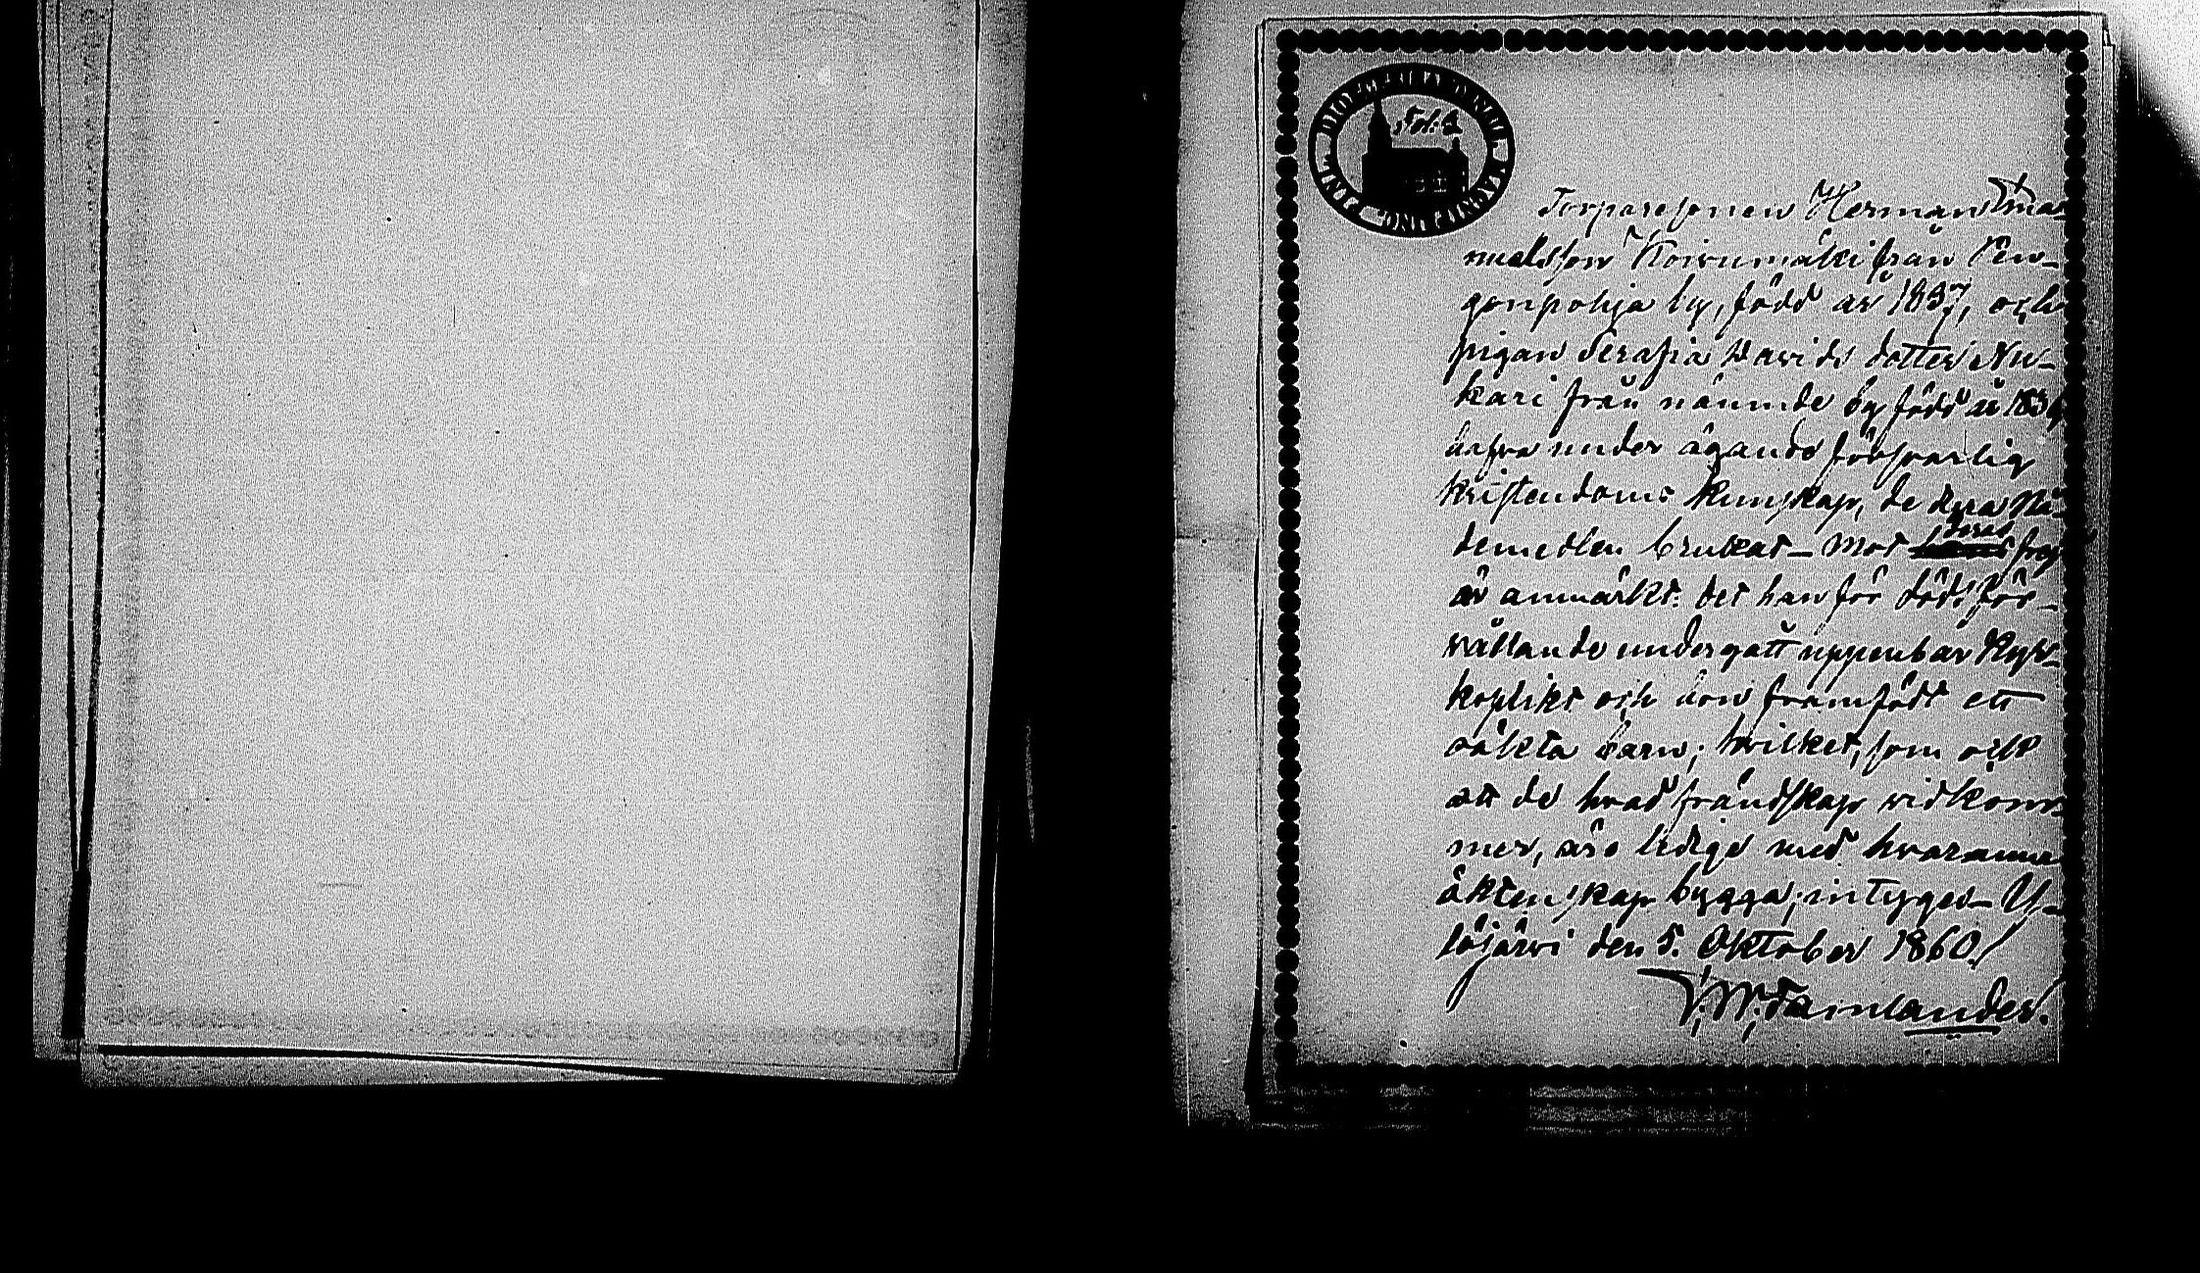 Fol. 2
Torparesonen Herman Ema-
nuelsson Koivumäki från Pen-
gonpohja by, född år 1837, och
pigan Serafia Davidsdotter Nu-
kari från nämnde by född år 183
hafva under ägande försvarlig
kristendoms kunskap, de dyra Nå-
demedlen brukat – mot deras frejd
är anmärkt: det han för döds för-
vållande undergått uppenbar Kyr-
koplikt och hon framfödt ett
oäkta barn; hvilket, som ock
att de hvad frändskap vidkom-
mer, äro ledige med hvarannan
äktenskap bygga; intyges – Y-
löjärvi den 5. Oktober 1860./
F. W. Tamlander.